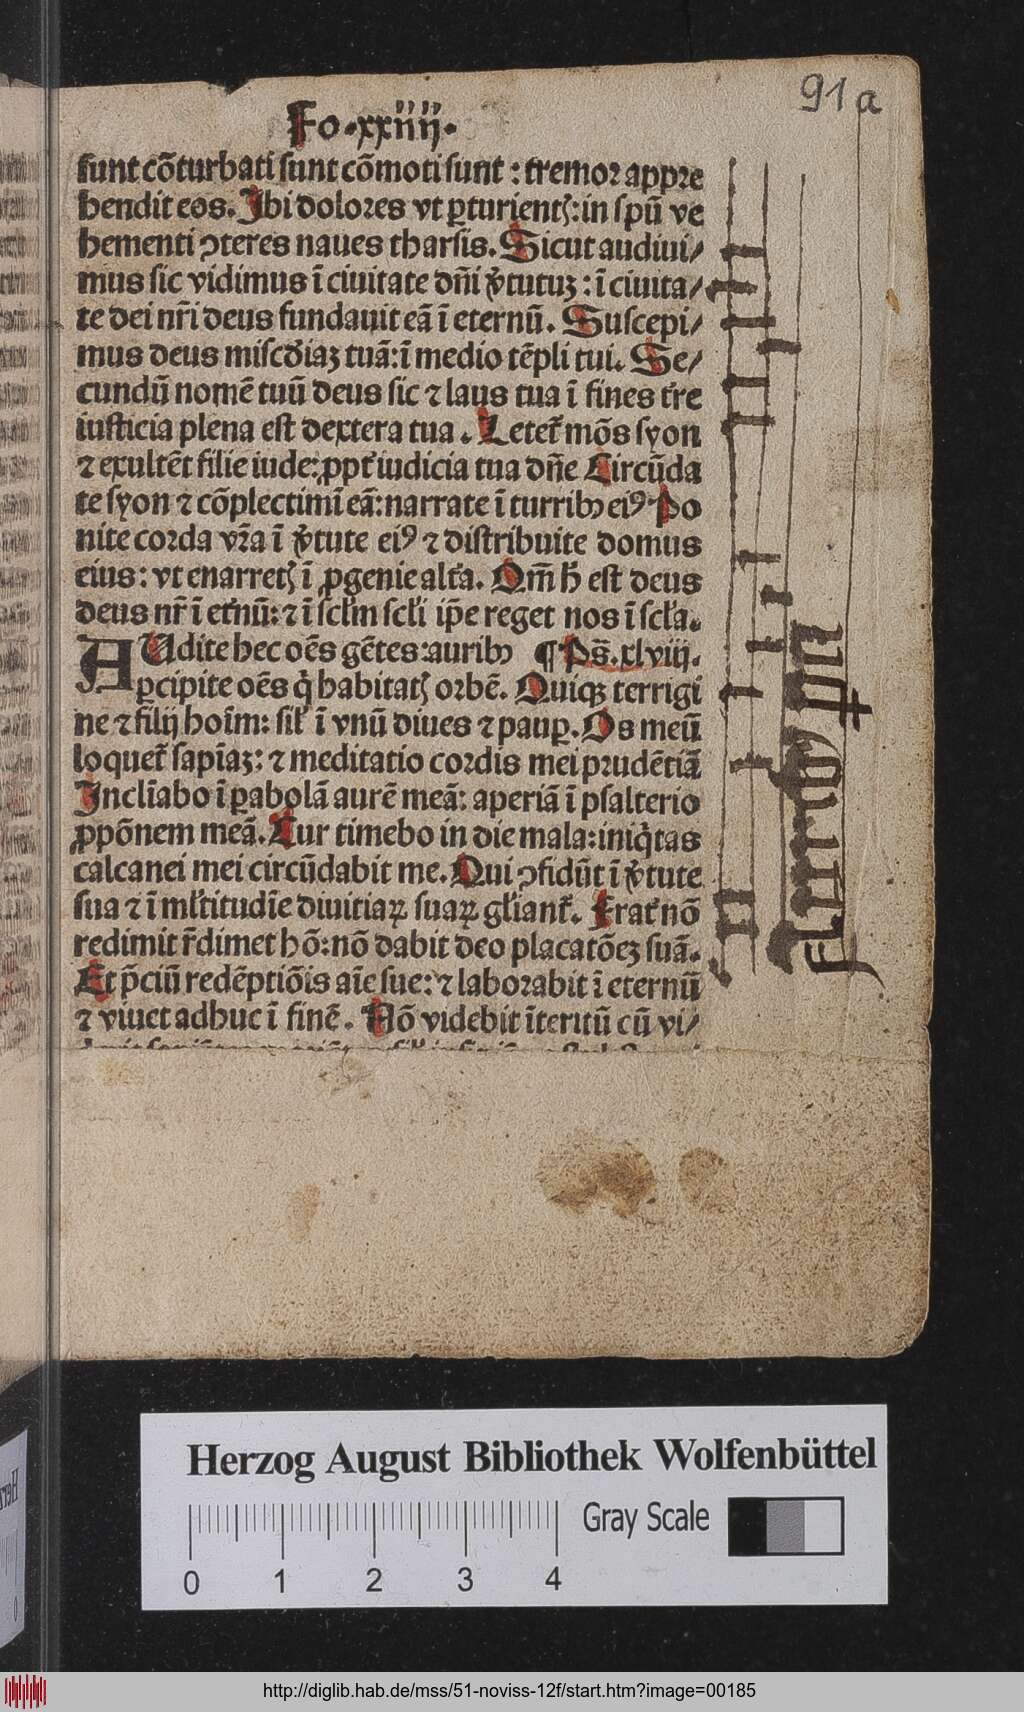 91 a
Fo·xxiiij·
sunt cōturbati sunt cōmoti sunt : tremor appre
hendit eos. Ibi dolores vt ꝑturientꝭ: in spū ve
hementi ꝯteres naues tharsis. Sicut audiui/
mus sic vidimus ī ciuitate dn̄i v̾tutuꝫ : ī ciuita/
te dei nr̄i deus fundauit eā ī eternū. Suscepi/
mus deus misc̄diaꝫ tuā: ī medio tēpli tui. Se/
cundū nomē tuū deus sic ⁊ laus tua ī fines tr̄e
iusticia plena est dextera tua. Letet᷑ mōs syon
⁊ exultēt filie iude: ꝓpt᷑ iudicia tua dn̄e Circūda
te syon ⁊ cōplectimī eā: narrate ī turribꝫ eiꝰ Po
nite corda vr̄a ī v̾tute eiꝰ ⁊ distribuite domus
eius: vt enarretꝭ ī ꝓgenie alt᷑a. Qm̄ h̄ est deus
deus nr̄ ī et᷑nū: ⁊ ī scl̄m scl̄i ip̄e reget nos ī scl̄a.
AUdite hec oēs gētes: auribꝫ ¶ Ps̄. xlviij.
ꝑcipite oēs q̇ habitatꝭ orbē. Quiqꝫ terrigi
ne ⁊ filij hoīm: sil̄ ī vnū diues ⁊ pauꝑ. Os meū
loquet᷑ sapīaꝫ: ⁊ meditatio cordis mei prudētiā
Inclīabo ī ꝑabolā aurē meā: aperiā ī psalterio
ꝓpōnem meā. Cur timebo in die mala: iniq̇tas
calcanei mei circūdabit me. Qui ꝯfidūt ī v̾tute
sua ⁊ ī ml̄titudīe diuitiaꝝ suaꝝ gl̄iant᷑. Frat᷑ nō
redimit r̄dimet hō: nō dabit deo placatōeꝫ suā.
Et p̄ciū redēptiōis aīe sue: ⁊ laborabit ī eternū
⁊ viuet adhuc ī finē. Nō videbit īteritū cū vi/
Herzog August Bibliothek Wolfenbüttel
0 1 2 3 4
Gray Scale
http://diglib.hab.de/mss/51-noviss-12f/start.htm?image=00185